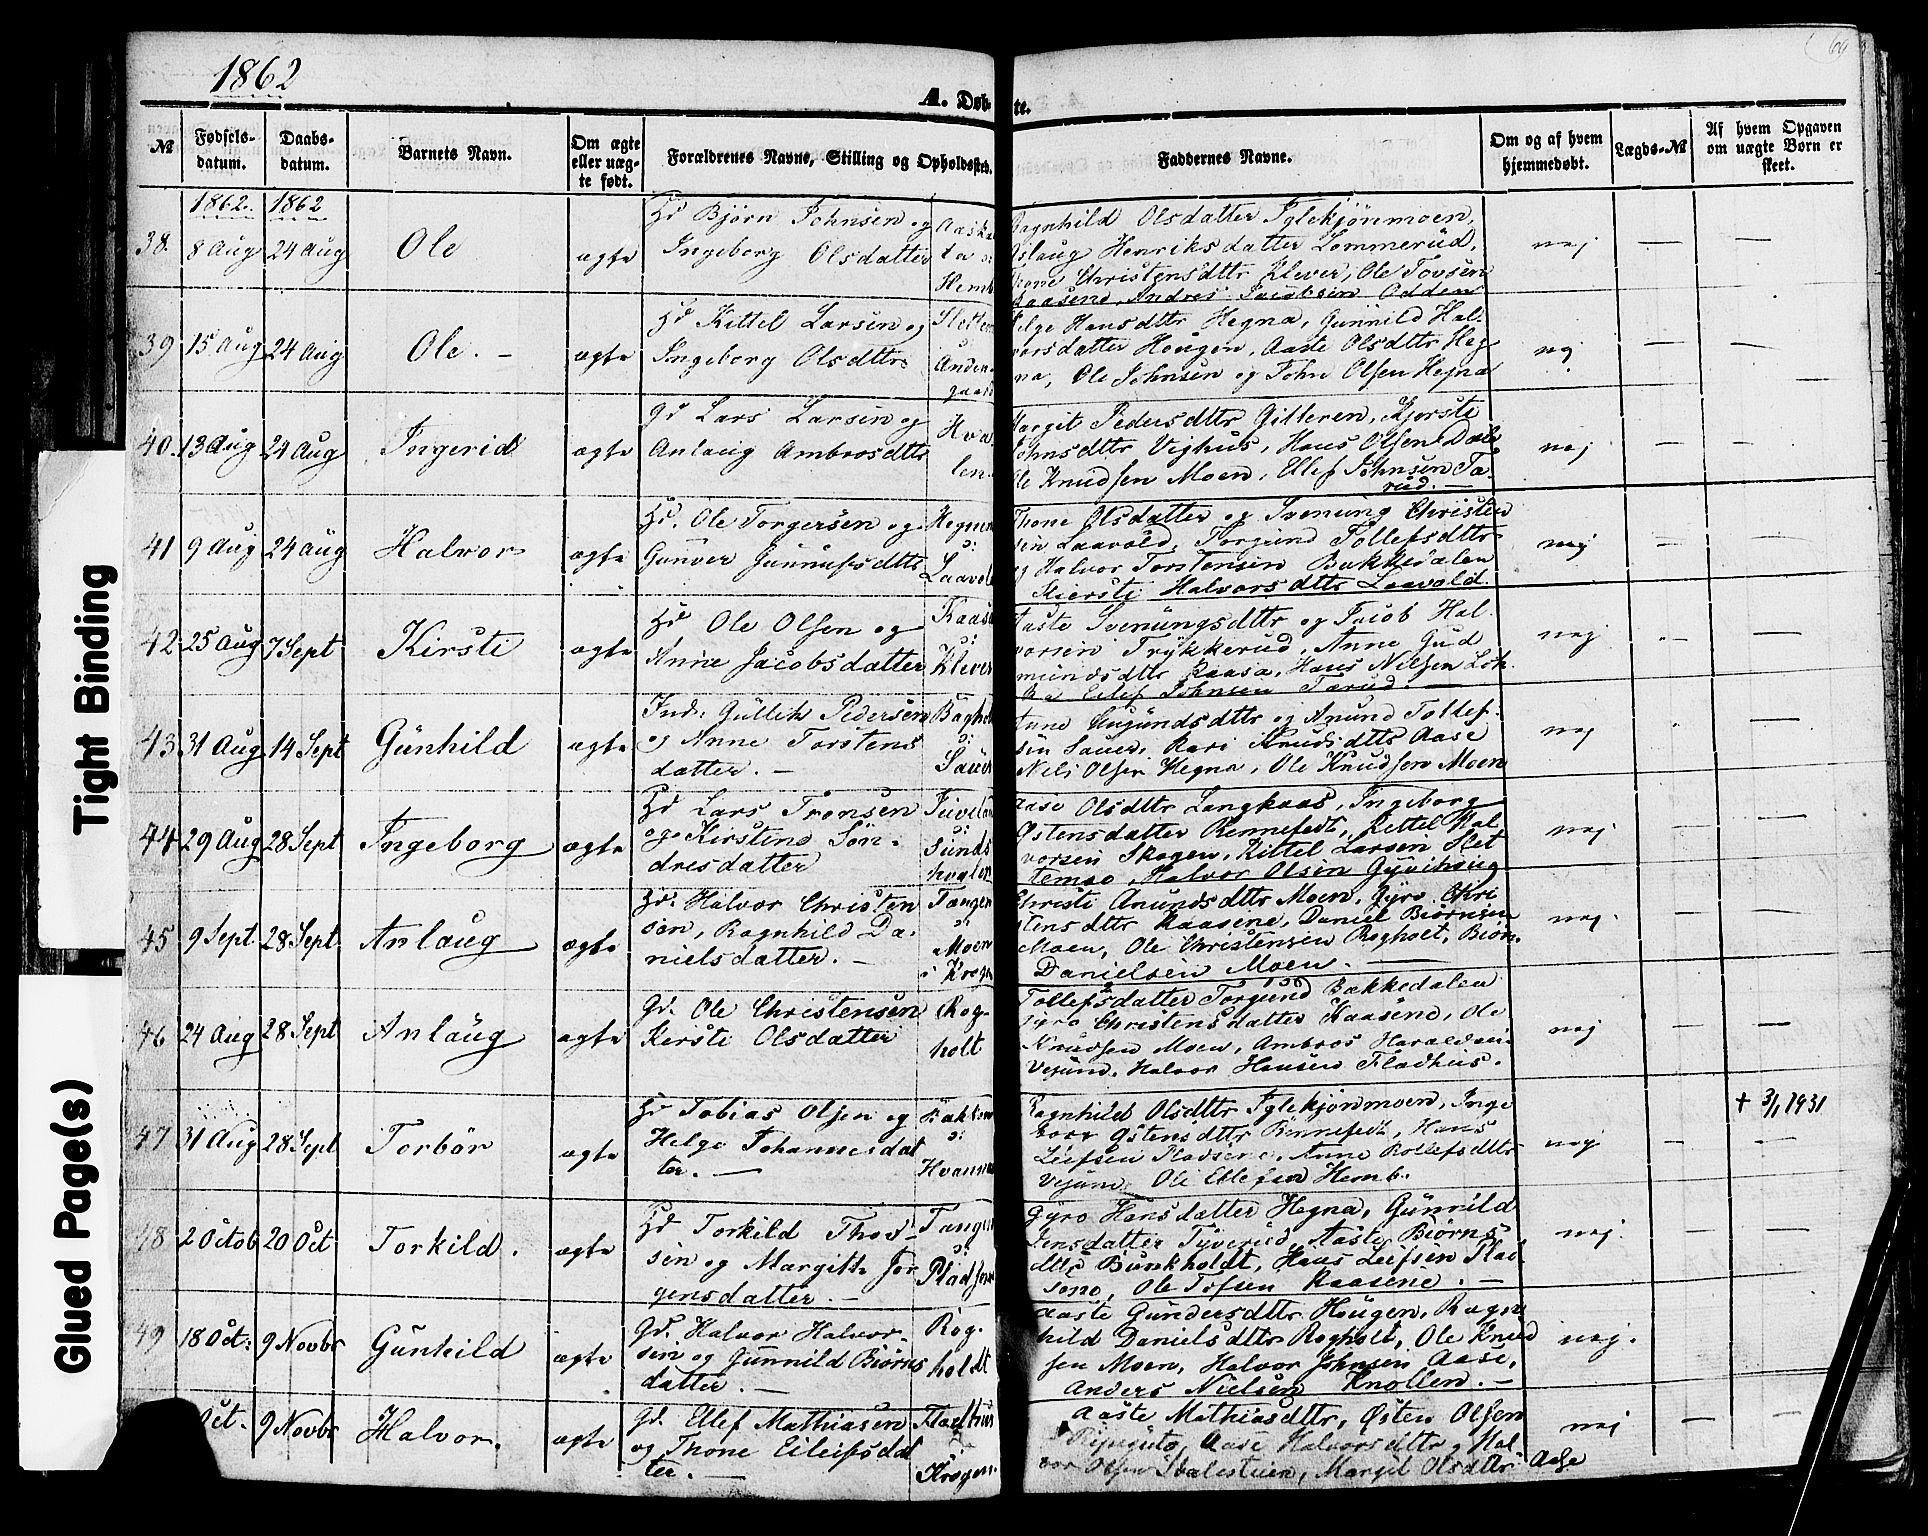 1862
A. Døb- te.
60
№
Fødsels-
datum.
Daabs-
datum.
Barnets Navn.
Om ægte
eller uæg-
te født.
Forældrenes Navne, Stilling og Opholdssted.
Faddernes Navne.
Om og af hvem
hjemmedøbt.
Lægds-№
Af hvem Opgaven
om uægte Børn er
skeet.
1862. 1862
38. 8 Aug 24 Aug Ole ægte
Hd Bjørn Johnsen og
Ingeborg Olsdatter
Hemb
Ragnhild Olsdatter Iglekjønmoen,
Aslaug Henriksdatter Lommerud,
Thone Christensdttr Klever, Ole Tovsen
Kaasene, Andres Jacobsen Odden
nej — —
39 15 Aug 24 Aug Ole. — ægte
Hd Kittel Larsen og
Ingeborg Olsdttr
Helge Hansdttr Hegna, Gunnild Hal-
vorsdatter Hougen, Aaste Olsdttr Heg-
na, Ole Johnsen og John Olsen Hegna
nej — —
40. 13 Aug 24 Aug Ingerid ægte
Gd Lars Larsen og
Anlaug Ambrosdttr
Hva
len.
Margit Pedersdttr Gitteren, Kjersti
Johnsdttr Vejhus, Hans Olsen Dale
Ole Knudsen Moen, Ellef Johnsen Ta-
rud. —
nej — —
41 9 Aug 24 Aug Halvor ægte
Hd. Ole Torgersen og
Gunver Gunnufsdttr
Laavold
Thone Olsdatter og Svenung Christen
sen Laavold, Torgund Tollefsdttr
og Halvor Torstensen Bakkedalen
Kiersti Halvorsdttr Laavold.
nej — —
42 25 Aug 7 Sept Kirste ægte
Hd Ole Olsen og
Anne Jacobsdatter
Kaasa
Klever
Aaste Svenungsdttr og Jacob Hal-
vorsen Trykkerud, Anne Gud
mundsdttr Kaasa, Hans Nilsen Loh-
Eilef Johnsen Tarud. —
nej — —
43 31 Aug 14 Sept Gunhild ægte
Ind. Gullik Pedersen
og Anne Torstens
datter. —
Saue
og Anund Tollef-
sen Saue, Kari Knudsdttr Aase
Nils Olsen Hegna, Ole Knudsen Moen
nej — —
44 29 Aug 28 Sept Ingeborg ægte
Hd Lars Tronsen
og Kirstine Søn-
dresdatter
Aase Olsdttr Langkaas, Ingeborg
Østensdatter Rennefedt, Kittel Hal-
vorsen Skogen, Kittel Larsen Slet
temo, Halvor Olsen Gyvihaug
nej — —
45 9 Sept. 28 Sept. Anlaug ægte
Hd. Halvor Christen
sen, Ragnhild Da-
nielsdatter. —
Tangen
Moen
i Krogen
Christi Anundsdttr Moen, Gyro Chri
stensdttr Kaasene, Daniel Biørnsen
Moen, Ole Christensen Rogholt, Biørn
Danielsen Moen. —
nej — —
46 24 Aug 28 Sept Anlaug ægte
Gd. Ole Christensen
Kersti Olsdatter
Rog-
holt
Tollefsdatter Torgund Bakkedalen
Gyro Christensdatter Kaasene, Ole
Knudsen Moen, Ambros Haraldsen
Vejund, Halvor Hansen Fladhus.
nej — —
47 31 Aug 28 Sept Torbør ægte
Hd Tobias Olsen og
Helge Johannesdat
ter. —
Bakken
Ragnhild Olsdttr Iglekjønmoen, Inge
borg Østensdttr Rennefedt, Hans
Leifsen Pladsene, Anne Rollefsdttr
Vejund, Ole Ellefsen Hemb.
nej — —
† 3/1 1931
48 2 Octob 20 Oct Torkild. ægte
Hd Torkild Thov-
sen og Margitte Jør
gensdatter. —
Tangen
Pladsene
Gyro Hansdatter Hegna, Gunnild
Jensdatter Tyverud, Aaste Biørns
dttr Bunkholdt, Hans Leifsen Plad
sene, Ole Tofsen Kaasene. —
nej. — —
49 18 Oct: 9 Novbr Gunhild ægte
Gd. Halvor Halvor-
sen og Gunnild Biørns
datter. —
Rog-
holdt
Aaste Gundersdttr Hougen, Ragn
hild Danielsdttr Rogholt, Ole Knud
sen Moen, Halvor Johnsen Aase,
Anders Nielsen Knollen. —
nej. — —
Oct. 9 Novbr Halvor. ægte
Gd. Ellef Mathiasen
og Thone Eilefsdat
ter. —
Fladhus
Krogen.
Aaste Mathiasdttr, Østen Olsen
Aase Halvorsdttr, Hal-
vor Olsen Margit Olsdttr Aase
nej — —
Tight Binding
Glued Page(s)